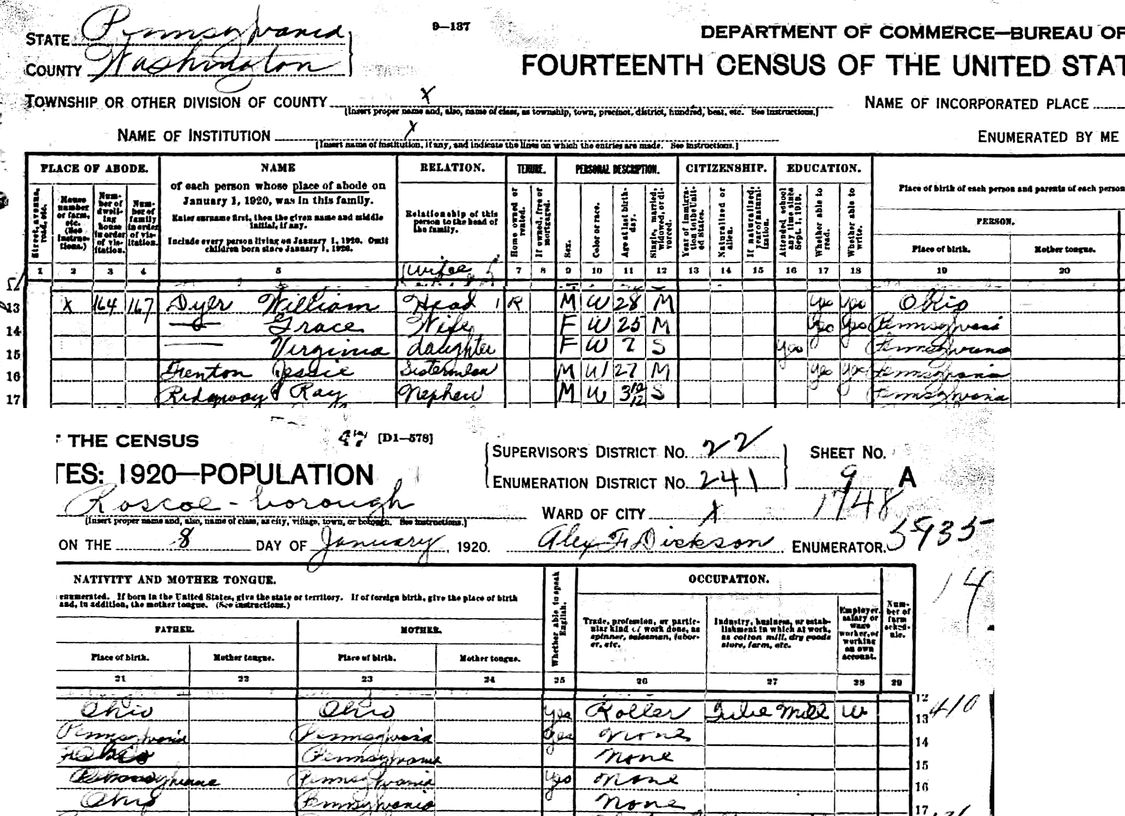 STATE Pennsylvania
9-137
DEPARTMENT OF COMMERCE—BUREAU OF
COUNTY Washington
FOURTEENTH CENSUS OF THE UNITED STAT
TOWNSHIP OR OTHER DIVISION OF COUNTY X
NAME OF INCORPORATED PLACE
[Insert proper name and, also, name of class, as township, town, precinct, district, hundred, beat, etc. See instructions.]
NAME OF INSTITUTION X
ENUMERATED BY ME
[Insert name of institution, if any, and indicate the lines on which the entries are made. See instructions.]
PLACE OF ABODE. NAME RELATION. TENURE. PERSONAL DESCRIPTION. CITIZENSHIP. EDUCATION.
Street, avenue, road, etc.
House number or farm, etc. (See instructions.)
Number of dwelling house in order of visitation.
Number of family in order of visitation.
of each person whose place of abode on January 1, 1920, was in this family.
Enter surname first, then the given name and middle initial, if any.
Include every person living on January 1, 1920. Omit children born since January 1, 1920.
Relationship of this person to the head of the family.
Home owned or rented.
If owned, free or mortgaged.
Sex.
Color or race.
Age at last birthday.
Single, married, widowed, or divorced.
Year of immigration to the United States.
Naturalized or alien.
If naturalized, year of naturalization.
Attended school any time since Sept. 1, 1919.
Whether able to read.
Whether able to write.
Place of birth of each person and parents of each person
PERSON.
Place of birth. Mother tongue.
1 2 3 4 5 6 7 8 9 10 11 12 13 14 15 16 17 18 19 20
wife
13 X 164 167 Dyer William Head 1 R M W 28 M yes yes Ohio
14 — Grace Wife F W 25 M yes yes Pennsylvania
15 — Virginia daughter F W 7 S yes Pennsylvania
16 Trenton Jessie Sisterinlaw M W 27 M yes yes Pennsylvania
17 Ridgway Ray Nephew M W 3 10/12 S Pennsylvania
THE CENSUS 47 [D1-578]
SUPERVISOR'S DISTRICT No. 22 SHEET No.
TES: 1920—POPULATION
ENUMERATION DISTRICT No. 241 9 A
Roscoe-borough
1748
[Insert proper name and, also, name of class, as city, village, town, or borough. See instructions.]
WARD OF CITY X
5935
ON THE 8 DAY OF January 1920. Alex F. Dickson ENUMERATOR.
14
NATIVITY AND MOTHER TONGUE. OCCUPATION.
enumerated. If born in the United States, give the state or territory. If of foreign birth, give the place of birth and, in addition, the mother tongue. (See instructions.)
FATHER. MOTHER.
Place of birth. Mother tongue. Place of birth. Mother tongue.
Whether able to speak English.
Trade, profession, or particular kind of work done, as spinner, salesman, laborer, etc.
Industry, business, or establishment in which at work, as cotton mill, dry goods store, farm, etc.
Employer, salary or wage worker, or working on own account.
Number of farm schedule.
21 22 23 24 25 26 27 28 29
12
Ohio Ohio yes Roller Tube Mill W 13 410
Pennsylvania Pennsylvania yes none 14
Ohio Pennsylvania none 15
Pennsylvania Pennsylvania yes none 16
Ohio Pennsylvania none 17